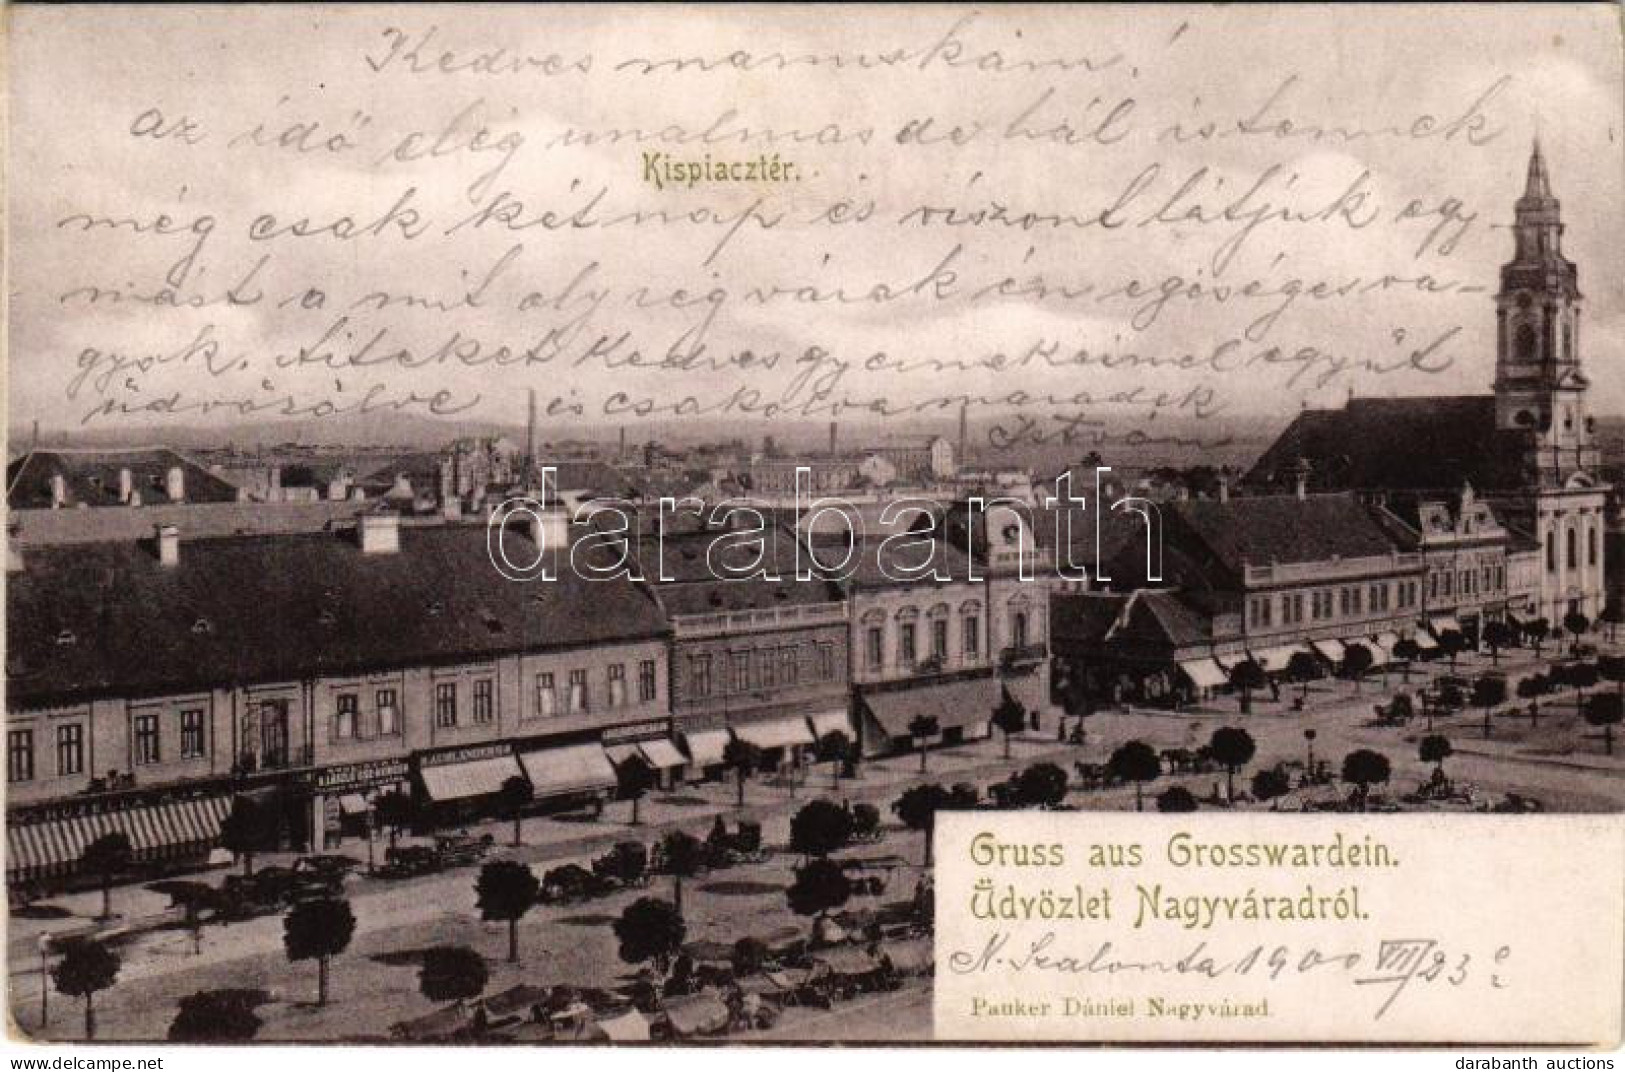 Kedves mamuskám!
az idő elég unalmas de hál istennek
Kispiacztér.
még csak két nap és viszont látjuk egy-
mást a mit oly rég várok én egéséges va-
gyok. Titeket kedves gyermekeimel együt
üdvözölve és csakolva maradok
István
darabanth
Gruss aus Grosswardein.
Üdvözlet Nagyváradról.
N. Szalonta 1900 VIII/23
Pauker Dániel Nagyvárad.
darabanth auctions